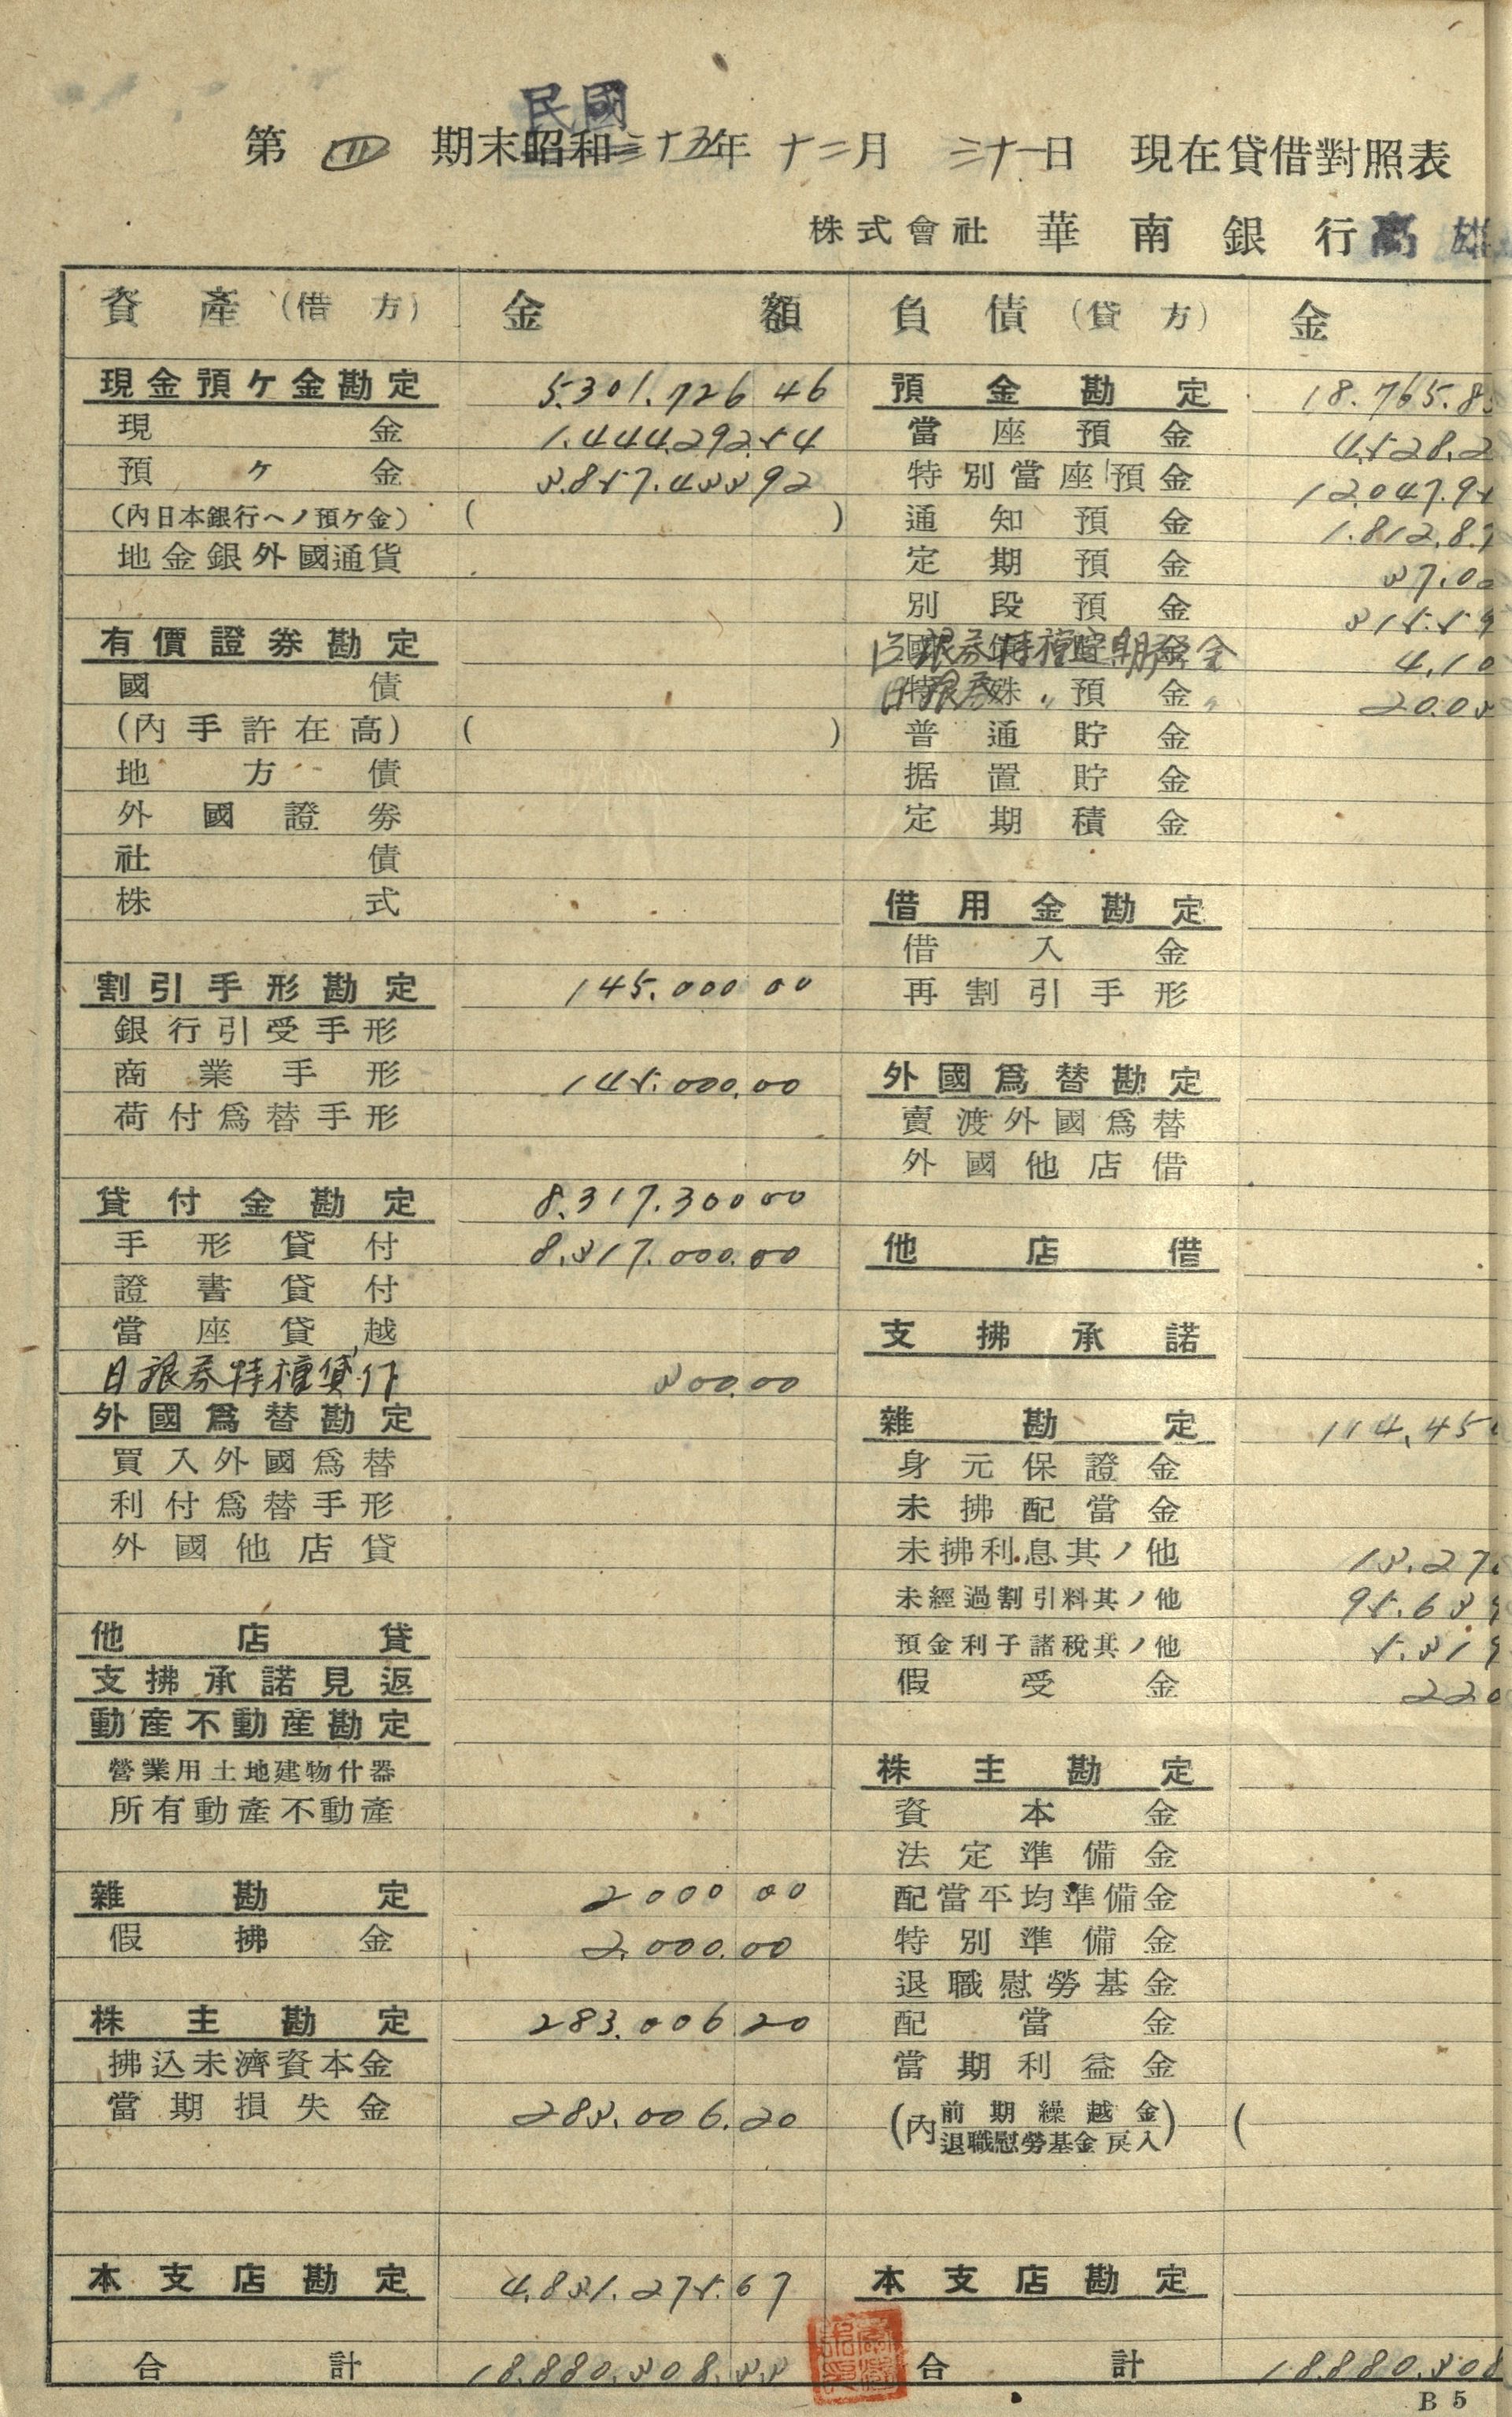 民國
第 四 期末昭和三十五年 十二月 三十一日 現在貸借對照表
株式會社 華南銀行高雄
資產(借方) 金額 負債(貸方) 金
現金預ケ金勘定 5.301.726 46 預金勘定 18.765.8
現金 1.444.292.54 當座預金 4.528.2
預ケ金 3.857.433 92 特別當座預金 12.047.95
(內日本銀行ヘノ預ケ金) ( ) 通知預金 1.812.8
地金銀外國通貨 定期預金 37.0
別段預金 315.59
有價證券勘定 4.10
國債 日銀券 〃 預金 〃 20.03
(內手許在高) ( ) 普通貯金
地方債 据置貯金
外國證劵 定期積金
社債
株式 借用金勘定
借入金
割引手形勘定 145.000 00 再割引手形
銀行引受手形
商業手形 145.000.00 外國爲替勘定
荷付爲替手形 賣渡外國爲替
外國他店借
貸付金勘定 8.317.300 00
手形貸付 8.317.000.00 他店借
證書貸付
當座貸越 支拂承諾
日銀券特種貸付 300.00
外國爲替勘定 雜勘定 114.45
買入外國爲替 身元保證金
利付爲替手形 未拂配當金
外國他店貸 未拂利息其ノ他 13.27
未經過割引料其ノ他 95.639
他店貸 預金利子諸稅其ノ他 5.319
支拂承諾見返 假受金 220
動產不動產勘定
營業用土地建物什器 株主勘定
所有動產不動產 資本金
法定準備金
雜勘定 2000 00 配當平均準備金
假拂金 2.000.00 特別準備金
退職慰勞基金
株主勘定 283.006 20 配當金
拂込未濟資本金 當期利益金
當期損失金 283.006.20 (內前期繰越金 退職慰勞基金戾入) (
本支店勘定 4.831.275.67 本支店勘定
合計 18.880.308.33 合計 18.880.308
B5